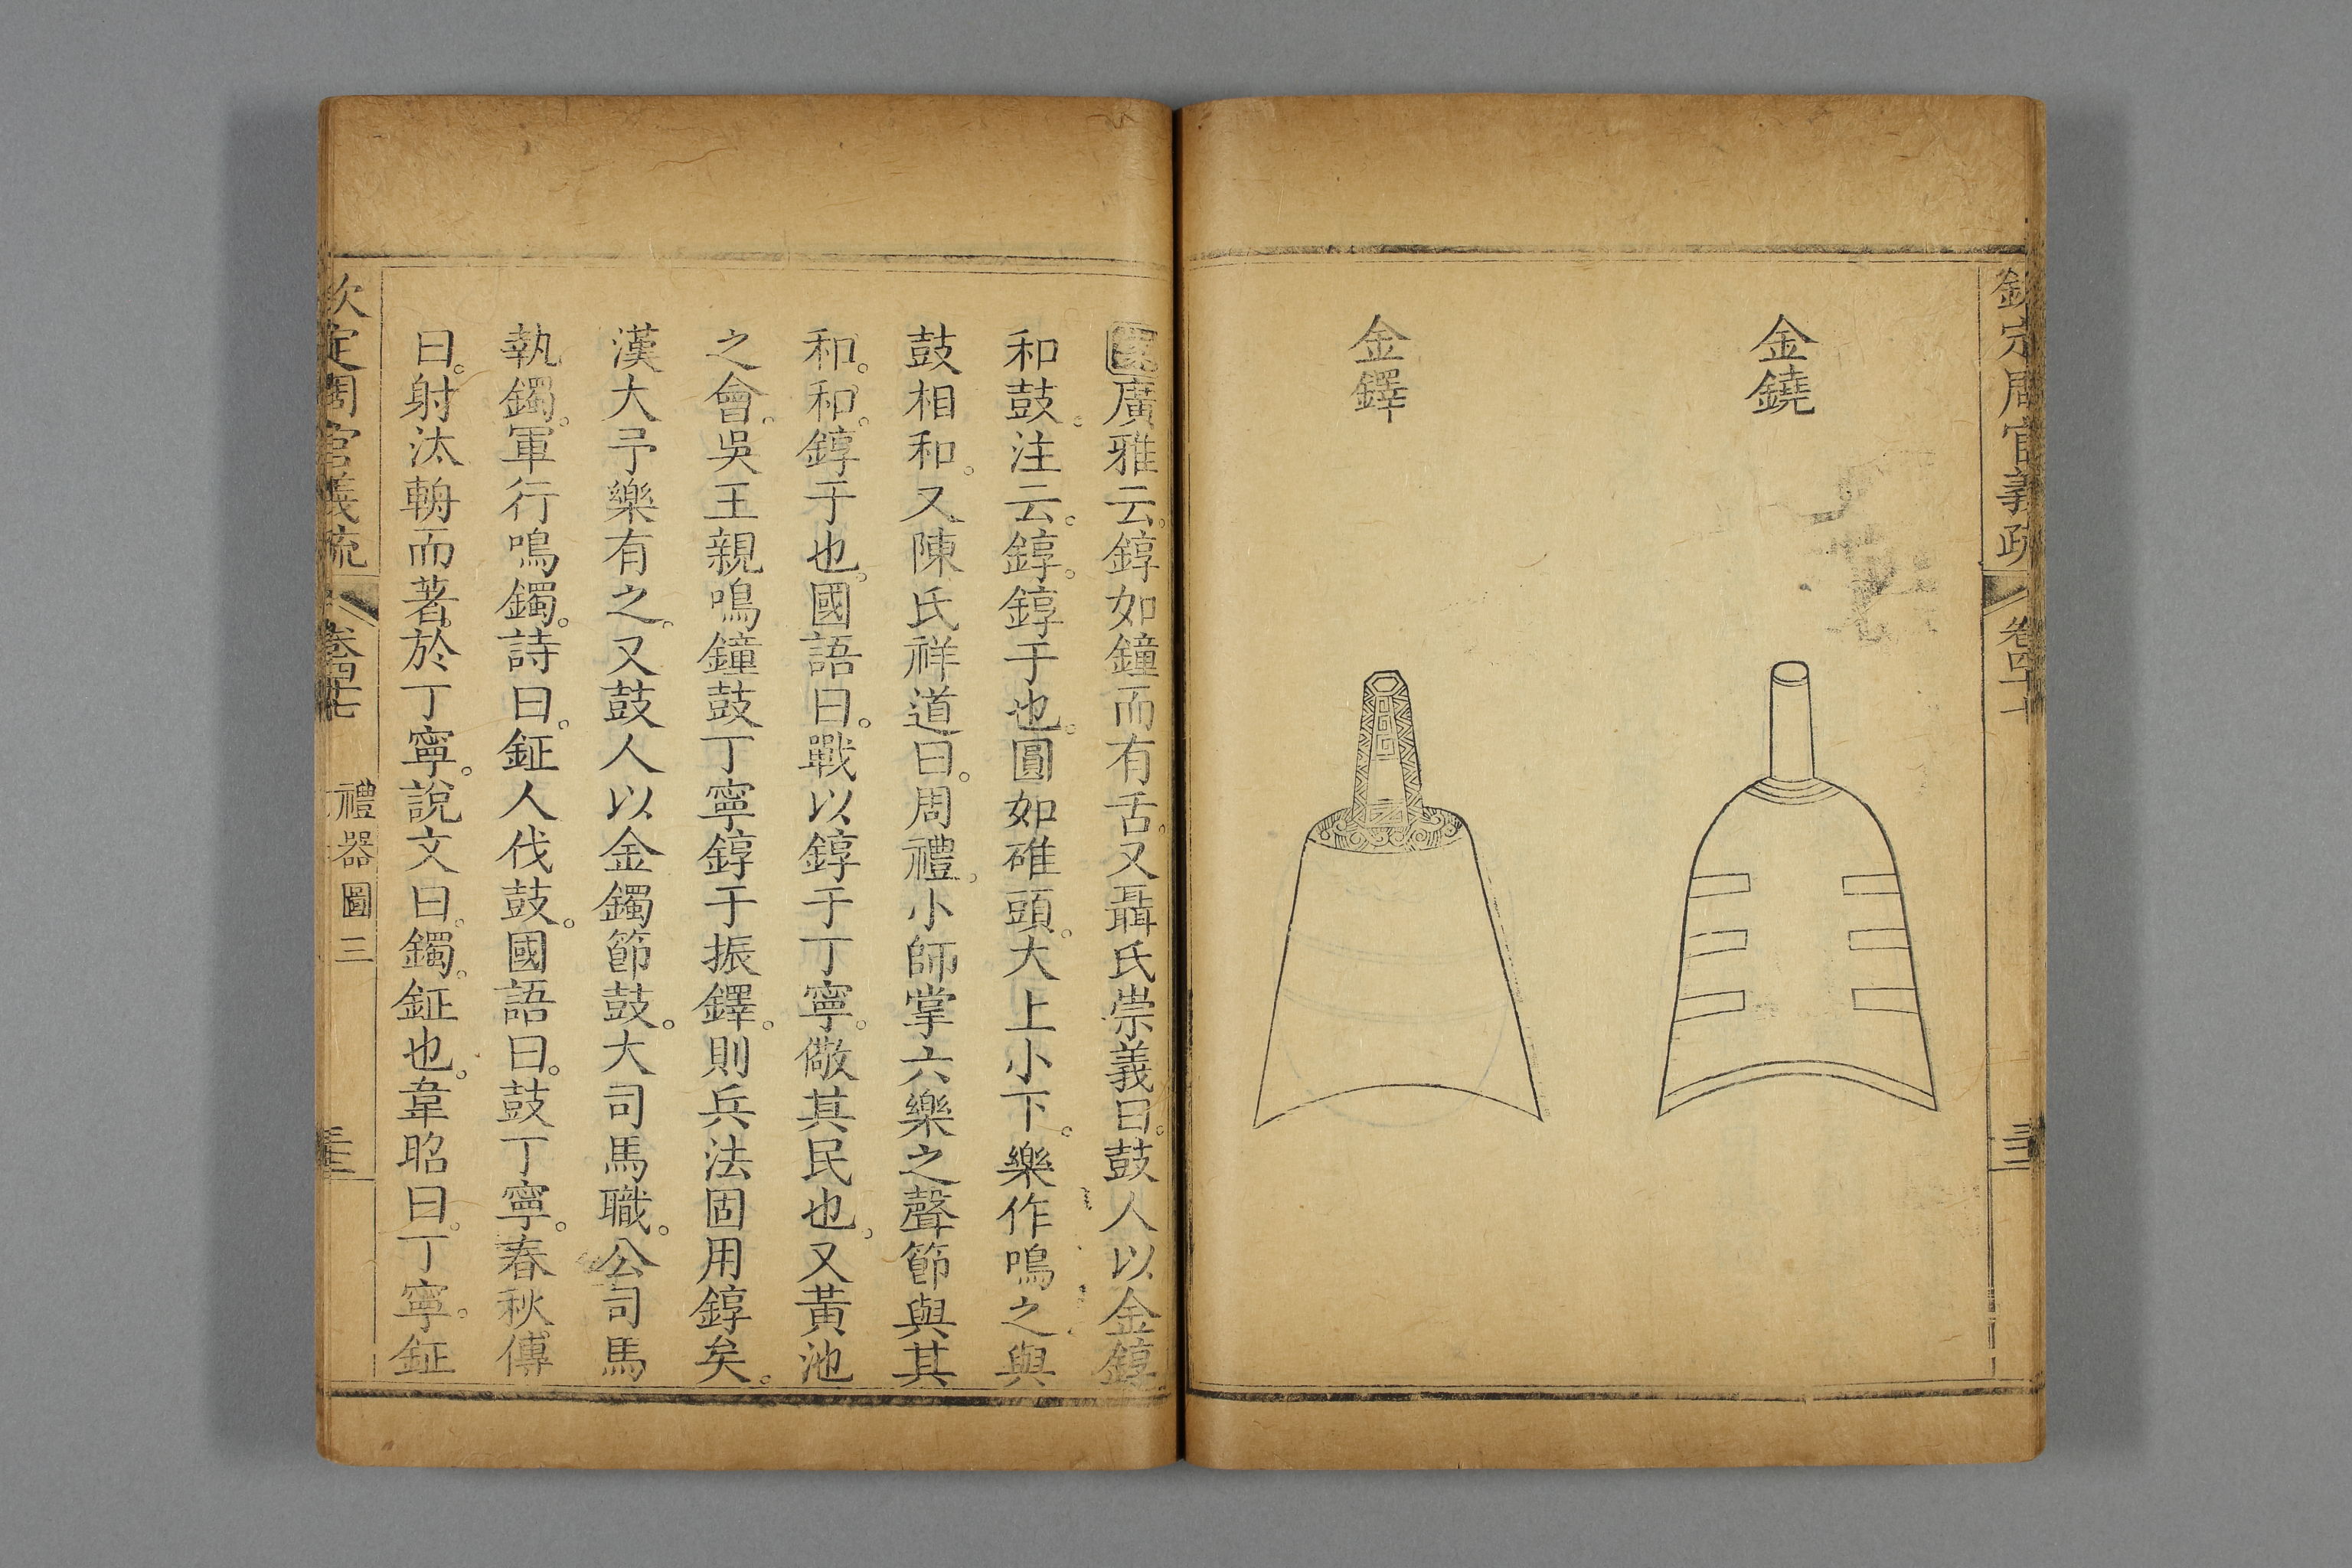 欽定周官義疏 卷四十七
金鐃
金鐸
廣雅云。錞如鐘而有舌。又聶氏崇義曰。鼓人以金錞
和鼓。注云。錞。錞于也。圓如碓頭。大上小下。樂作鳴之與
鼓相和。又陳氏祥道曰。周禮。小師掌六樂之聲節與其
和。和。錞于也。國語曰。戰以錞于丁寧。儆其民也。又黃池
之會。吳王親鳴鐘鼓丁寧錞于振鐸。則兵法固用錞矣。
漢大予樂有之。又鼓人以金鐲節鼓。大司馬職。公司馬
執鐲。軍行鳴鐲。詩曰。鉦人伐鼓。國語曰。鼓丁寧。春秋傳
曰。射汰輈而著。於丁寧。說文曰。鐲。鉦也。韋昭曰。丁寧。鉦
欽定周官義疏 卷四十七 禮器圖三